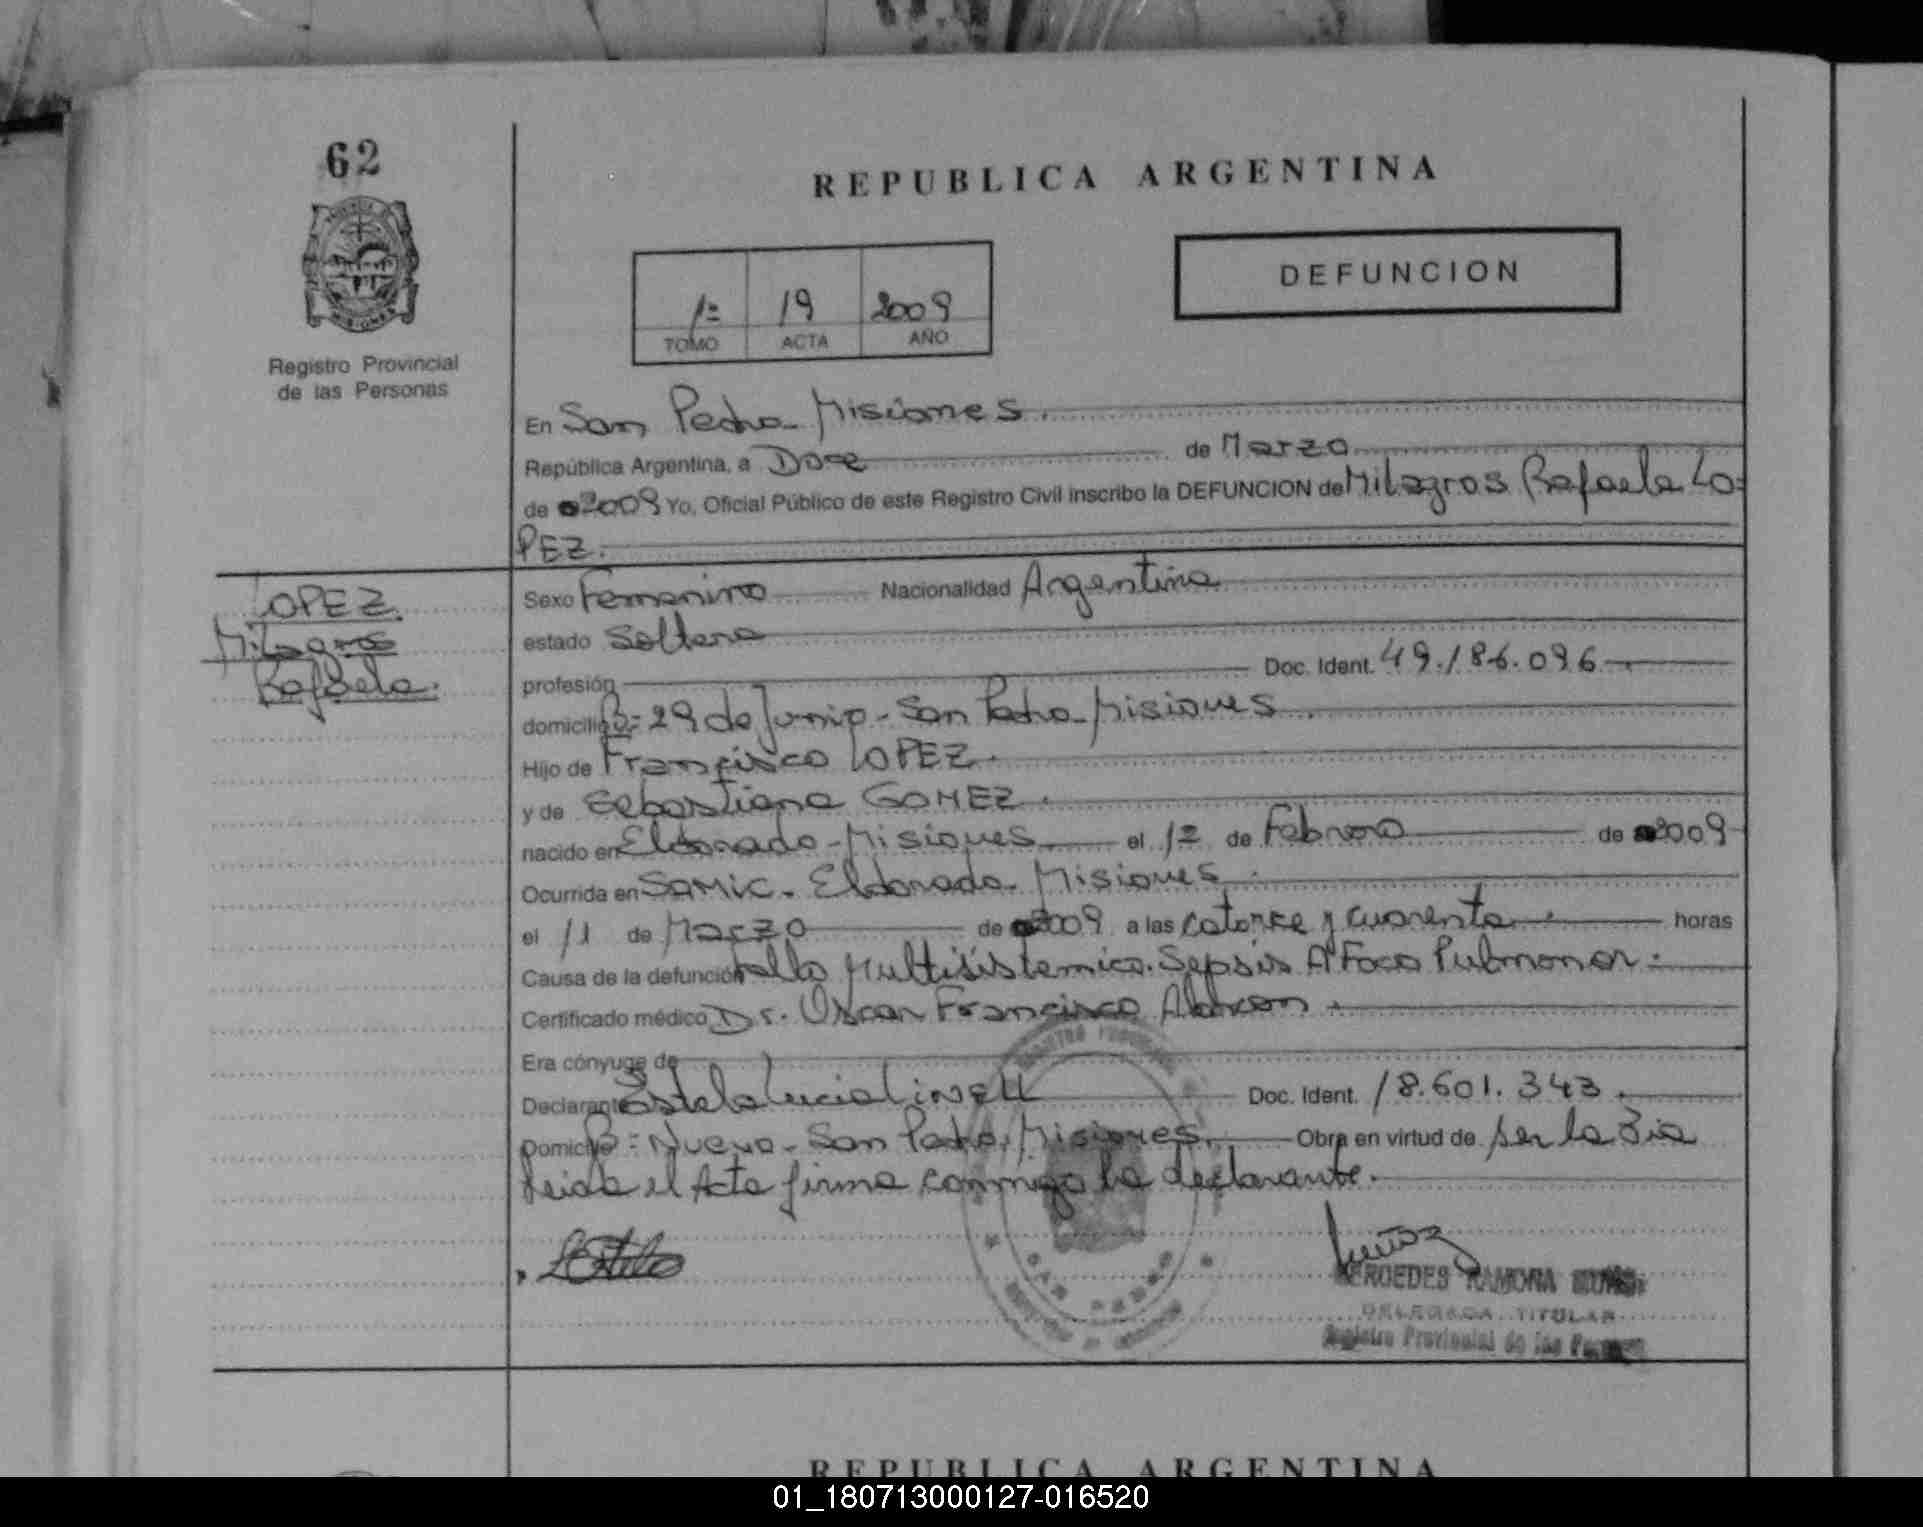 62
REPUBLICA ARGENTINA
DEFUNCION
1º 19 2009
TOMO ACTA AÑO
Registro Provincial
de las Personas
En San Pedro - Misiones.
República Argentina, a Doce de Marzo
de 2009 Yo, Oficial Público de este Registro Civil inscribo la DEFUNCION de Milagros Rafaela Lo=
PEZ.
LOPEZ
Milagros
Rafaela.
Sexo Femenino Nacionalidad Argentina
estado Soltera
profesión Doc. Ident. 49.186.096
domicilio Bº 29 de Junio - San Pedro - Misiones
Hijo de Francisco LOPEZ.
y de Sebastiana GOMEZ.
nacido en Eldorado - Misiones el 1º de Febrero de 2009
Ocurrida en SAMIC. Eldorado - Misiones
el 11 de Marzo de 2009 a las catorce y cuarenta horas
Causa de la defunción Fallo Multisistemico. Sepsis A Foco Pulmonar.
Certificado médico Dr. Oscar Francisco Alarcon.
Era cónyuge de
Declarante Estela Lucia Doc. Ident. 18.601.343.
Domicilio Bº Nuevo - San Pedro, Misiones. Obra en virtud de ser la Tia
leida el Acta firma conmigo la declarante.
SAN PEDRO
MERCEDES RAMONA
DELEGADA TITULAR
Registro Provincial de las
REPUBLICA ARGENTINA
01_180713000127-016520